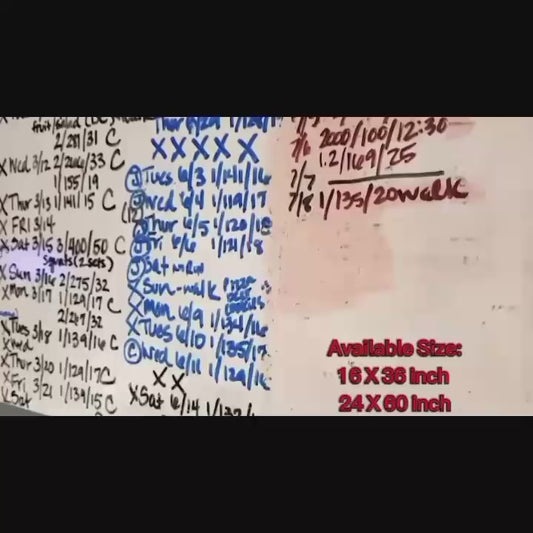 fruit/salad
2/281/31 C
X Wed 3/12 2/266/33 C
1/155/19
X Thur 3/13 1/141/15 C
X FRI 3/14
X Sat 3/15 3/400/50 C
Squats (2 sets)
X Sun 3/16 2/275/32
X Mon 3/17 1/129/17 C
2/247/32
X Tues 3/18 1/139/16 C
X Wed
X Thur 3/20 1/129/17 C
X Fri 3/21 1/139/15 C
X Sat
X X X X X
Tues 6/3 1/141/16
Wed 6/4 1/119/17
Thur 6/5 1/120/18
Fri 6/6 1/121/18
Sat
Sun-walk
X Mon 6/9 1/134/16
X Tues 6/10 1/135/17
C Wed 6/11 1/129/16
X X
X Sat 6/14 1/132/
7/6 2000/100/12:30
1.2/169/25
7/7
7/8 1/135/20 walk
Available Size:
16 X 36 inch
24 X 60 inch